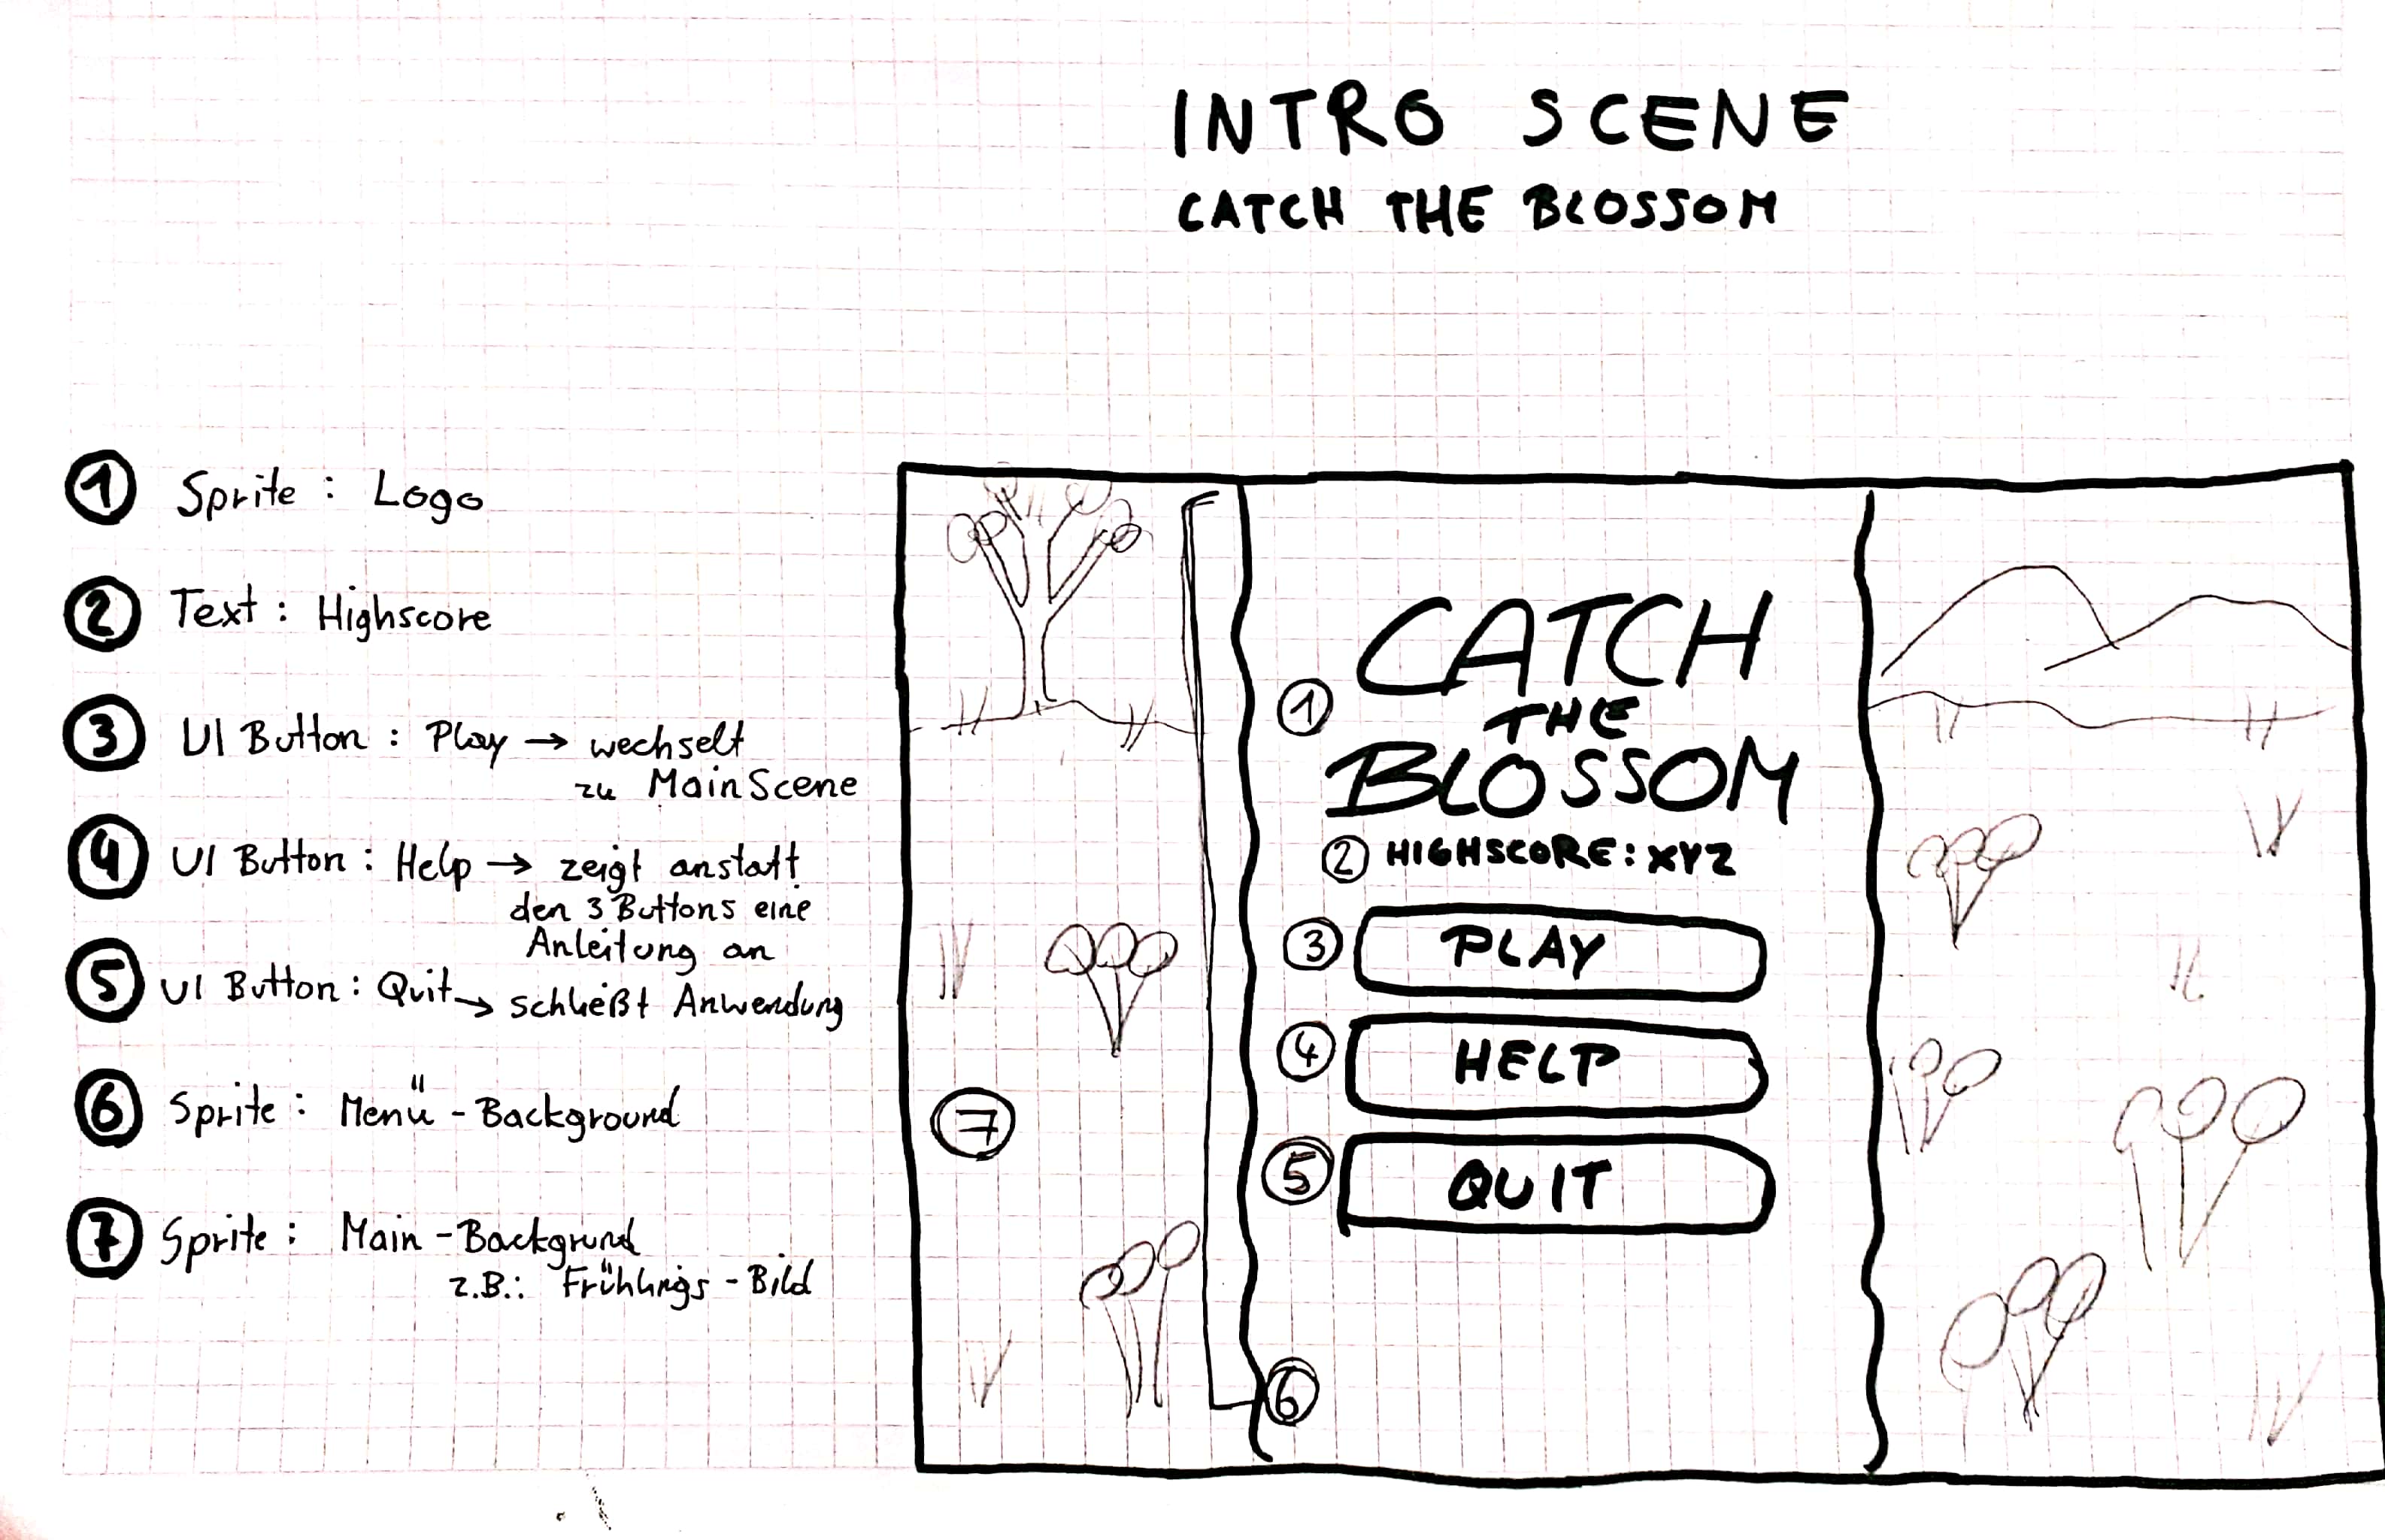 INTRO SCENE
CATCH THE BLOSSOM
1 Sprite : Logo
2 Text : Highscore
3 UI Button : Play → wechselt
zu MainScene
4 UI Button : Help → zeigt anstatt
den 3 Buttons eine
Anleitung an
5 UI Button : Quit → schließt Anwendung
6 Sprite : Menü - Background
7 Sprite : Main - Backgrund
z.B.: Frühlings - Bild
CATCH
1 THE
BLOSSOM
2 HIGHSCORE: XYZ
3 PLAY
4 HELP
7
5 QUIT
6